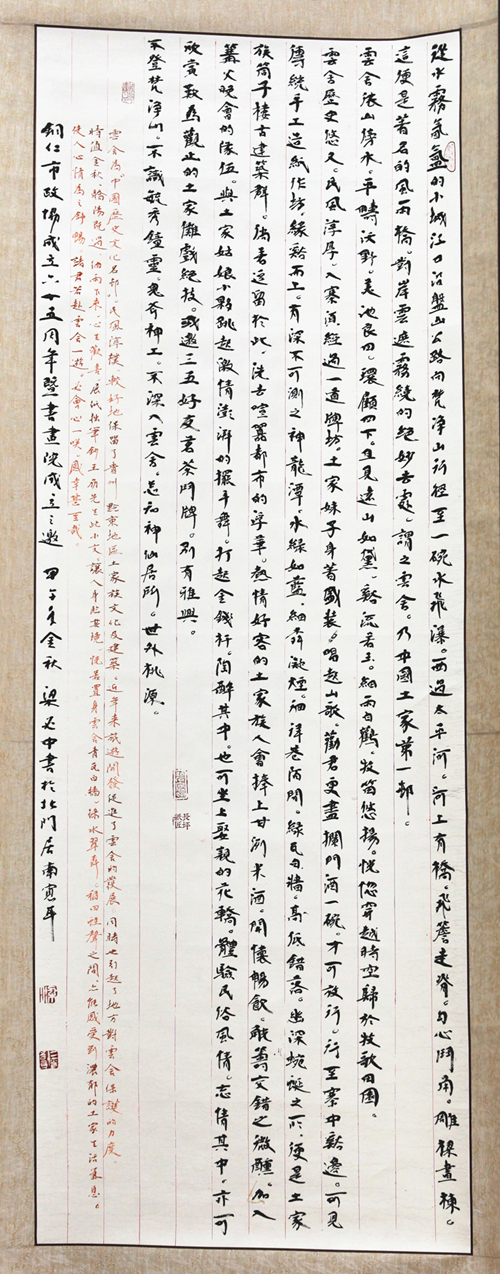 從水霧氤氳的小城江口沿盤山公路向梵淨山行徑至一碗水飛瀑。西過太平河。河上有橋。飛簷走脊。勾心鬥角。雕樑畫棟。
這便是著名的風雨橋。對岸雲遮霧繞的絕妙去處。謂之雲舍。乃中國土家第一部。
雲舍依山傍水。平疇沃野。美池良田。環顧四下。但見遠山如黛。谿流若玉。細雨白鷺。牧笛悠揚。恍惚穿越時空歸於牧歌田園。
雲舍歷史悠久。民風淳厚。入寨須經過一道牌坊。土家妹子身著盛装。唱起山歌。勸君更盡攔門酒一碗。才可放行。行至寨中谿邊。可見
傳統手工造紙作坊。緣谿而上。有深不可測之神龍潭。水綠如藍。細霧凝煙。細詳巷陌間。綠瓦白牆。高低錯落。幽深蜿蜒之所。便是土家
族筒子樓古建築群。倘若逗留於此。洗去喧囂都市的浮華。熱情好客的土家族人會捧上甘洌米酒。開懷暢飲。觥籌交錯之微醺。加入
篝火晚會的隊伍。與土家姑娘小夥跳起激情澎湃的擺手舞。打起金錢杆。陶醉其中。也可坐上娶親的花轎。體驗民俗風情。忘情其中。亦可
欣賞歎為觀止的土家儺戲絕技。或邀三五好友茗茶鬥牌。別有雅興。
不登梵淨山。不識毓秀鍾靈。鬼奇神工。不深入雲舍。怎知神仙居所。世外桃源。
雲舍為中國歷史文化名部。民風淳樸。較好地保留了貴州黔東地區土家族文化及建築。近年来旅遊開發促進了雲舍的發展。同時也引起了地方對雲舍保護的力度。
時值金秋。驕陽既過。細雨下来。心生歡喜。展紙執筆鈔王先生此小文。讓人身赴其境。恍若置身雲舍青瓦白牆。綠水翠霧。稻田蛙聲之間。亦能感受到濃郁的土家生活氣息。
使人心情為之舒暢。諸君若赴雲舍一遊。必會心一咲。感幸甚至哉。
銅仁市政協成立六十五周年暨書畫院成立之邀 金秋 梁必中書於北門居南窗